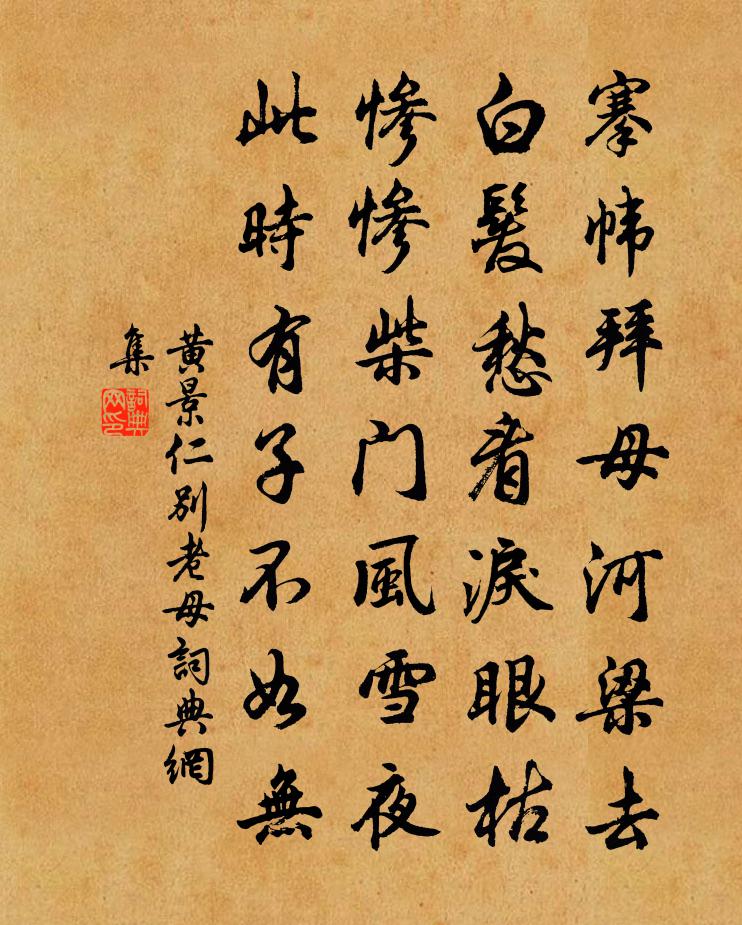 搴帏拜母河梁去
白髮愁看淚眼枯
慘慘柴门風雪夜
此時有子不如無
黄景仁别老母詞典網
集
詞典
网印